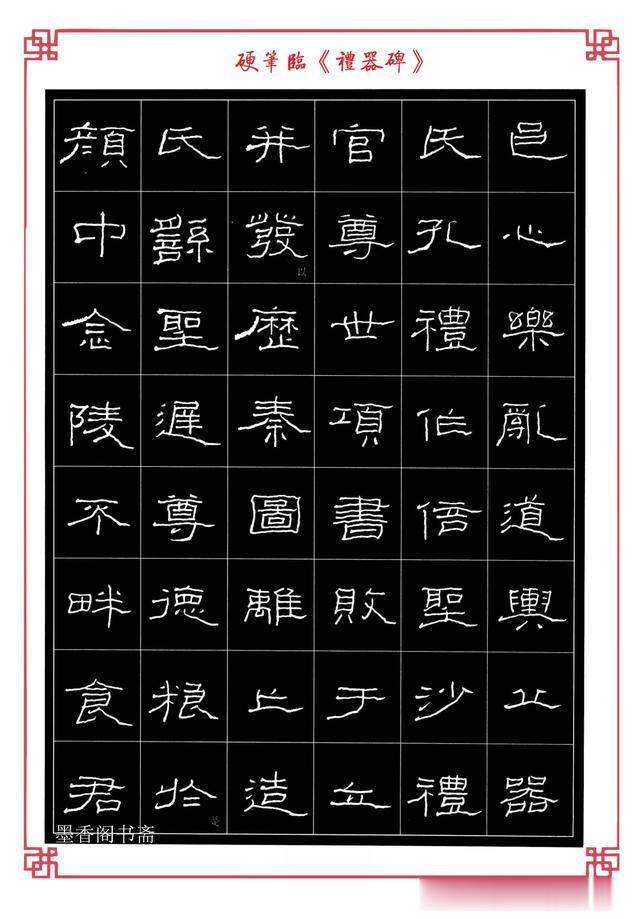 硬筆臨《禮器碑》
顏氏并官氏邑
中繇發以尊孔心
念聖歷世禮樂
陵遲秦項作亂
不尊圖書倍道
畔德離敗聖輿
食粮亡于沙丘
君於是造立禮器
墨香阁书斋